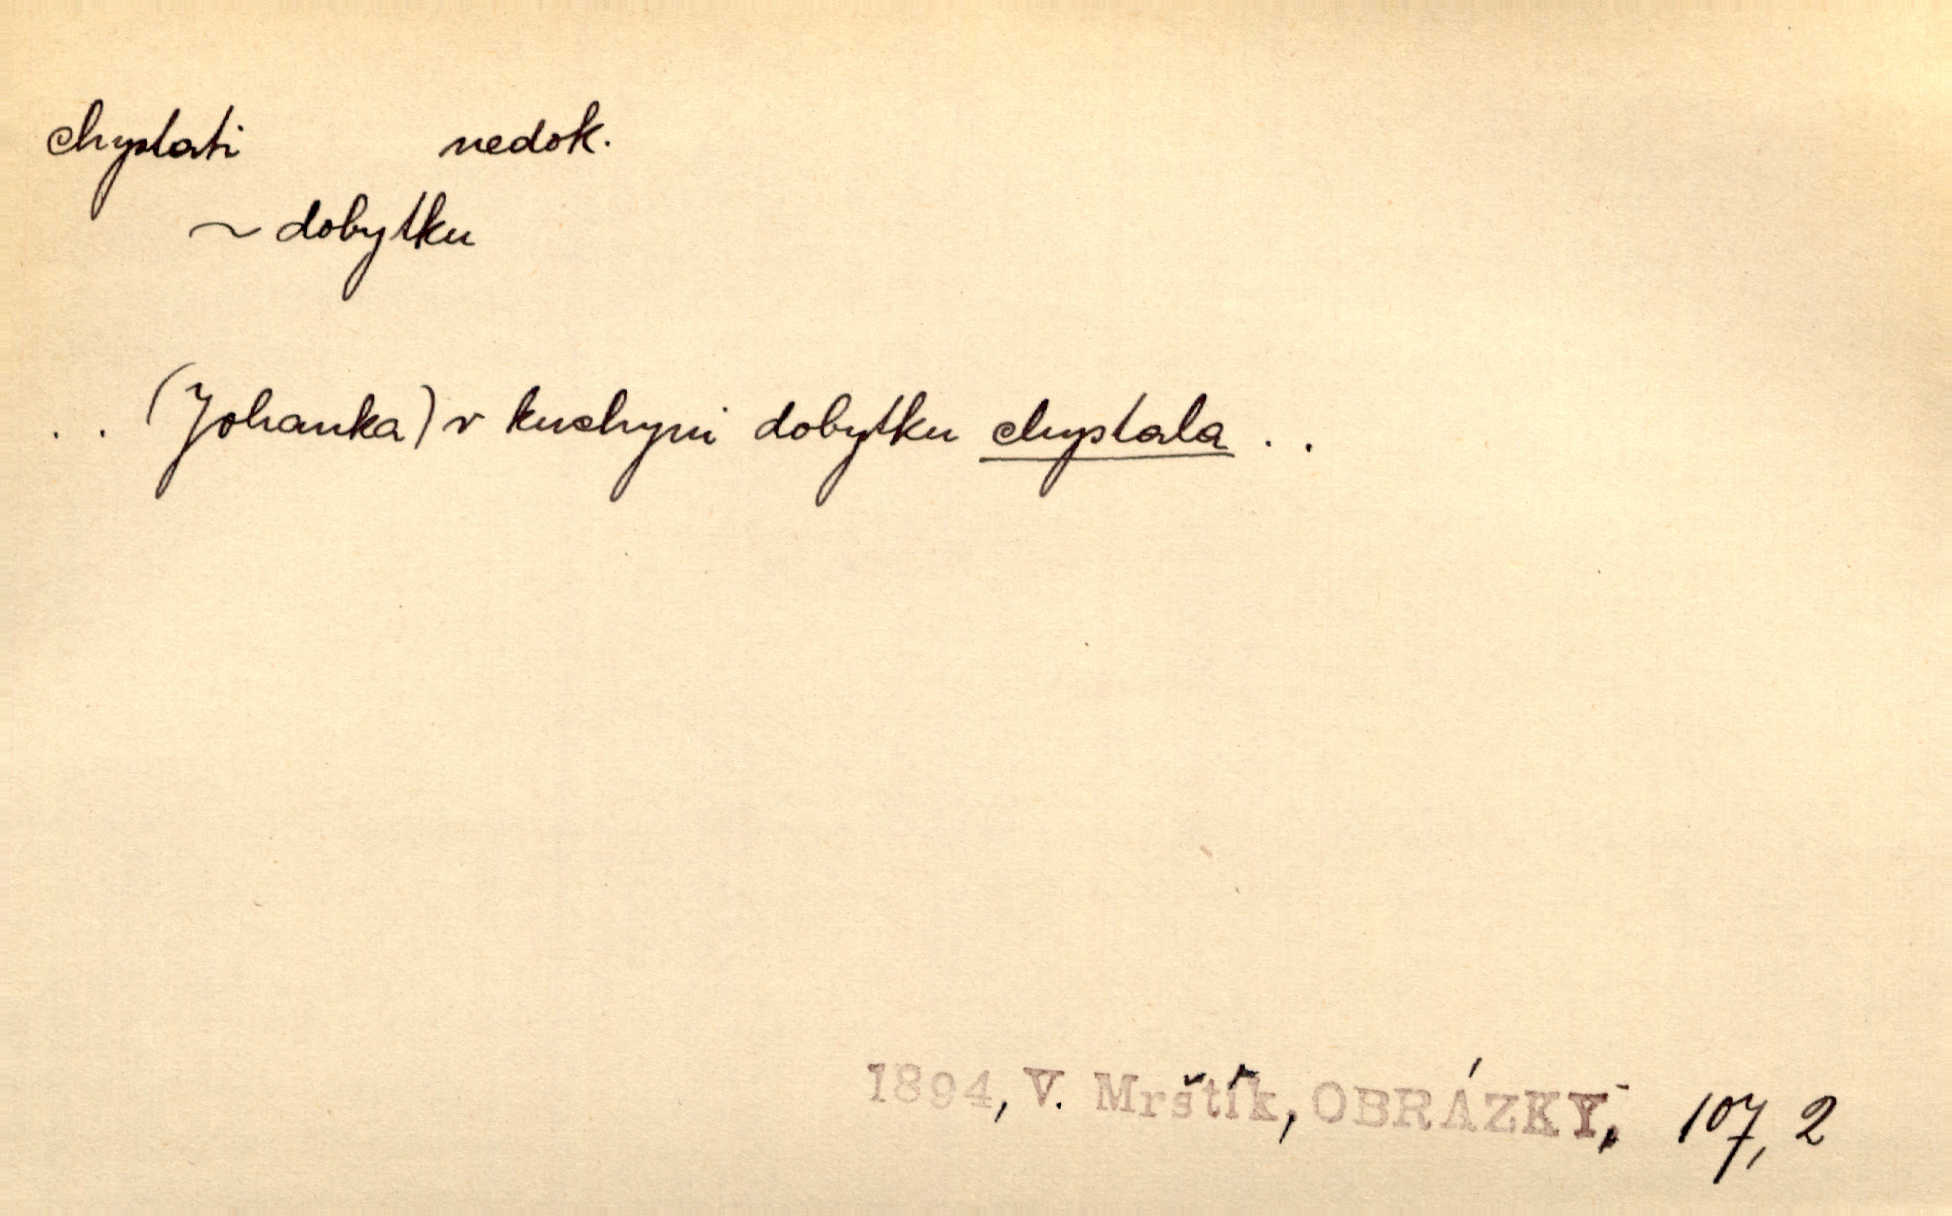 chystati nedok.
~ dobytku
. . (Johanka) v kuchyni dobytku chystala . .
1894, V. Mrštík, OBRÁZKY, 107, 2